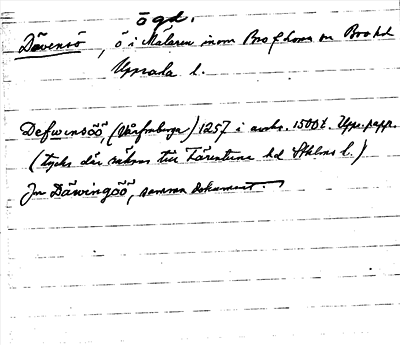 ögd.
Dävensö, ö i Mälaren inom Bro s:n o. Bro hd
Uppsala l.
Defwinsöö, (Vårfruberga) 1257 i avskr. 1500t. Upps. papp.
(tycks där räknas till Färentuna hd Sthlms l.)
Jn Däwingöö, samma dokument.